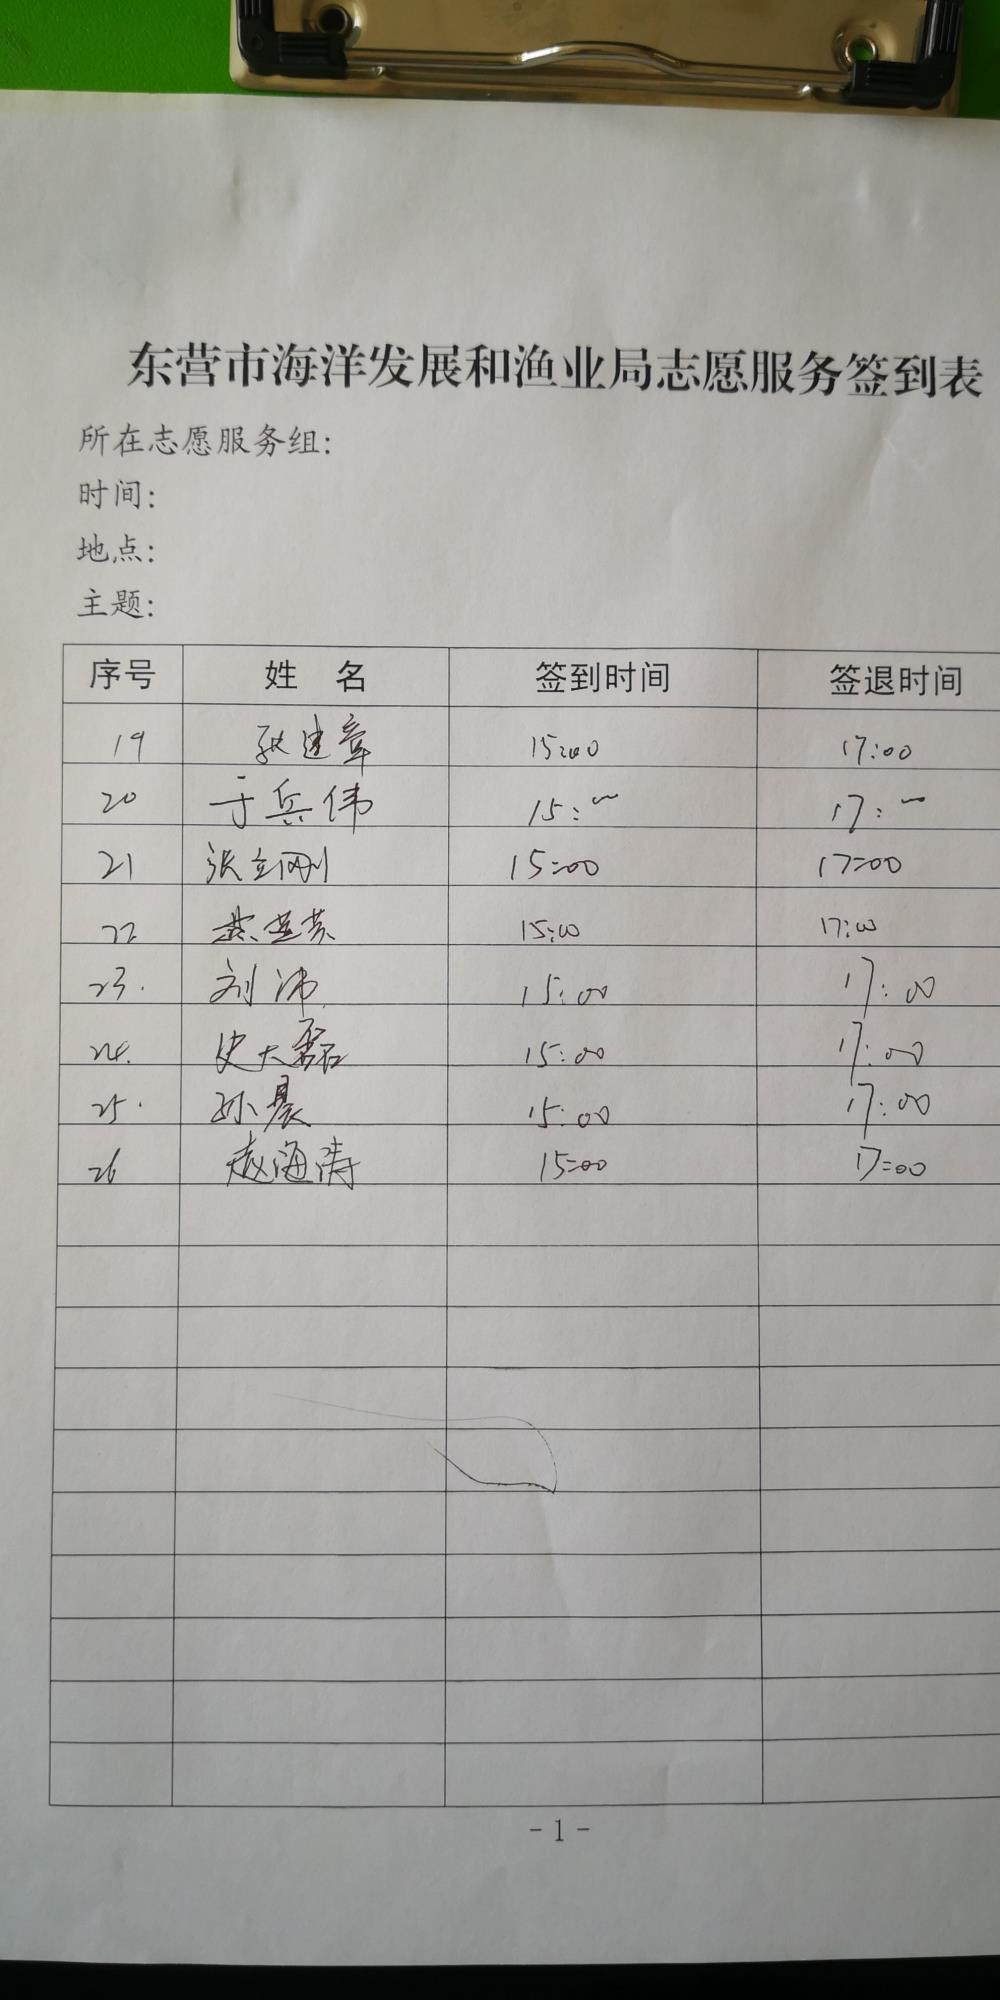 东营市海洋发展和渔业局志愿服务签到表
所在志愿服务组:
时间:
地点:
主题:
序号 姓 名 签到时间 签退时间
19 耿建章 15:00 17:00
20 于兵伟 15: 17:
21 张立刚 15:00 17:00
22 15:00 17:00
23. 刘沛 15:00 17:00
24. 史大磊 15:00 17:00
25. 孙晨 15:00 17:00
26 赵海涛 15:00 17:00
- 1 -